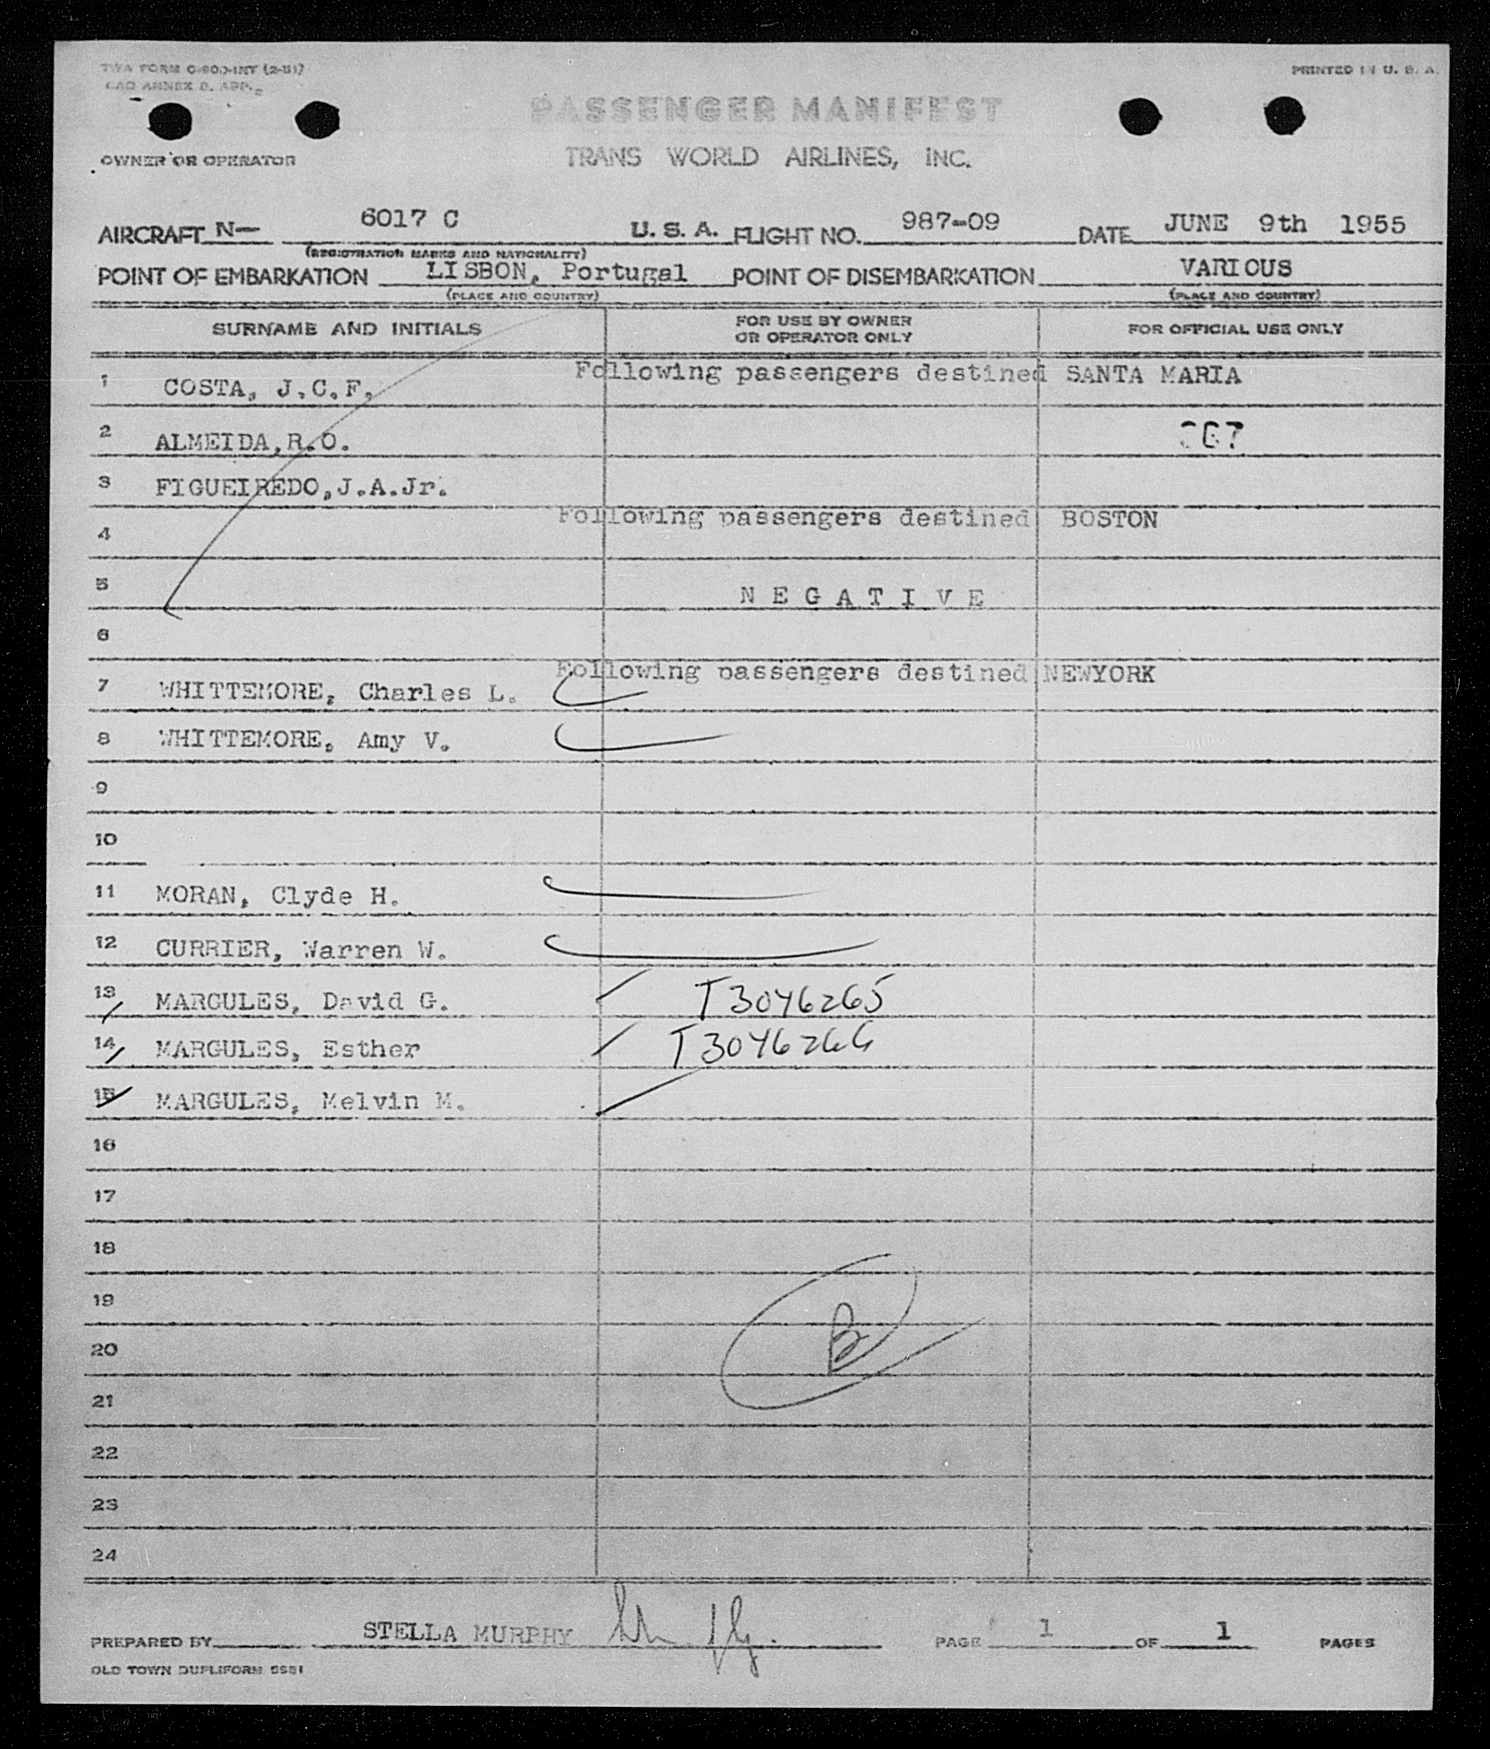 TWA FORM O-800-INT (2-51)
CAO ANNEX 9. APP.
PRINTED IN U. S. A.
PASSENGER MANIFEST
OWNER OR OPERATOR
TRANS WORLD AIRLINES, INC.
AIRCRAFT N— 6017 C U. S. A. FLIGHT NO. 987-09 DATE JUNE 9th 1955
(REGISTRATION MARKS AND NATIONALITY)
POINT OF EMBARKATION LISBON, Portugal POINT OF DISEMBARKATION VARIOUS
(PLACE AND COUNTRY) (PLACE AND COUNTRY)
SURNAME AND INITIALS FOR USE BY OWNER OR OPERATOR ONLY FOR OFFICIAL USE ONLY
Following passengers destined SANTA MARIA
1 COSTA, J.C.F.
2 ALMEIDA,R.O. 367
3 FIGUEIREDO,J.A.Jr.
Following passengers destined BOSTON
4
5 N E G A T I V E
6
Following passengers destined NEWYORK
7 WHITTEMORE, Charles L.
8 WHITTEMORE, Amy V.
9
10
11 MORAN, Clyde H.
12 CURRIER, Warren W.
13 MARGULES, David G. T3046265
14 MARGULES, Esther T3046266
15 MARGULES, Melvin M.
16
17
18
19
20 B
21
22
23
24
PREPARED BY STELLA MURPHY PAGE 1 OF 1 PAGES
OLD TOWN DUPLIFORM 5551